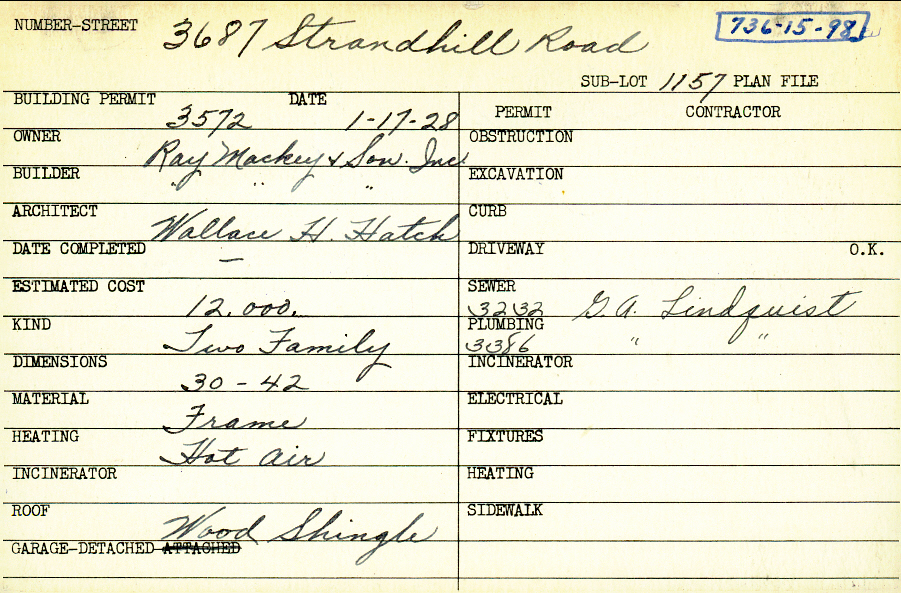 NUMBER-STREET 3687 Strandhill Road 736-15-98
SUB-LOT 1157 PLAN FILE
BUILDING PERMIT 3572 DATE 1-17-28
PERMIT CONTRACTOR
OWNER Ray Mackey & Son. Inc
OBSTRUCTION
BUILDER " " "
EXCAVATION
ARCHITECT Wallace H. Hatch
CURB
DATE COMPLETED —
DRIVEWAY O.K.
ESTIMATED COST 12.000.
SEWER 3232 G.A. Lindquist
KIND Two Family
PLUMBING 3386 " "
DIMENSIONS 30-42
INCINERATOR
MATERIAL Frame
ELECTRICAL
HEATING Hot Air
FIXTURES
INCINERATOR
HEATING
ROOF Wood Shingle
SIDEWALK
GARAGE-DETACHED ATTACHED